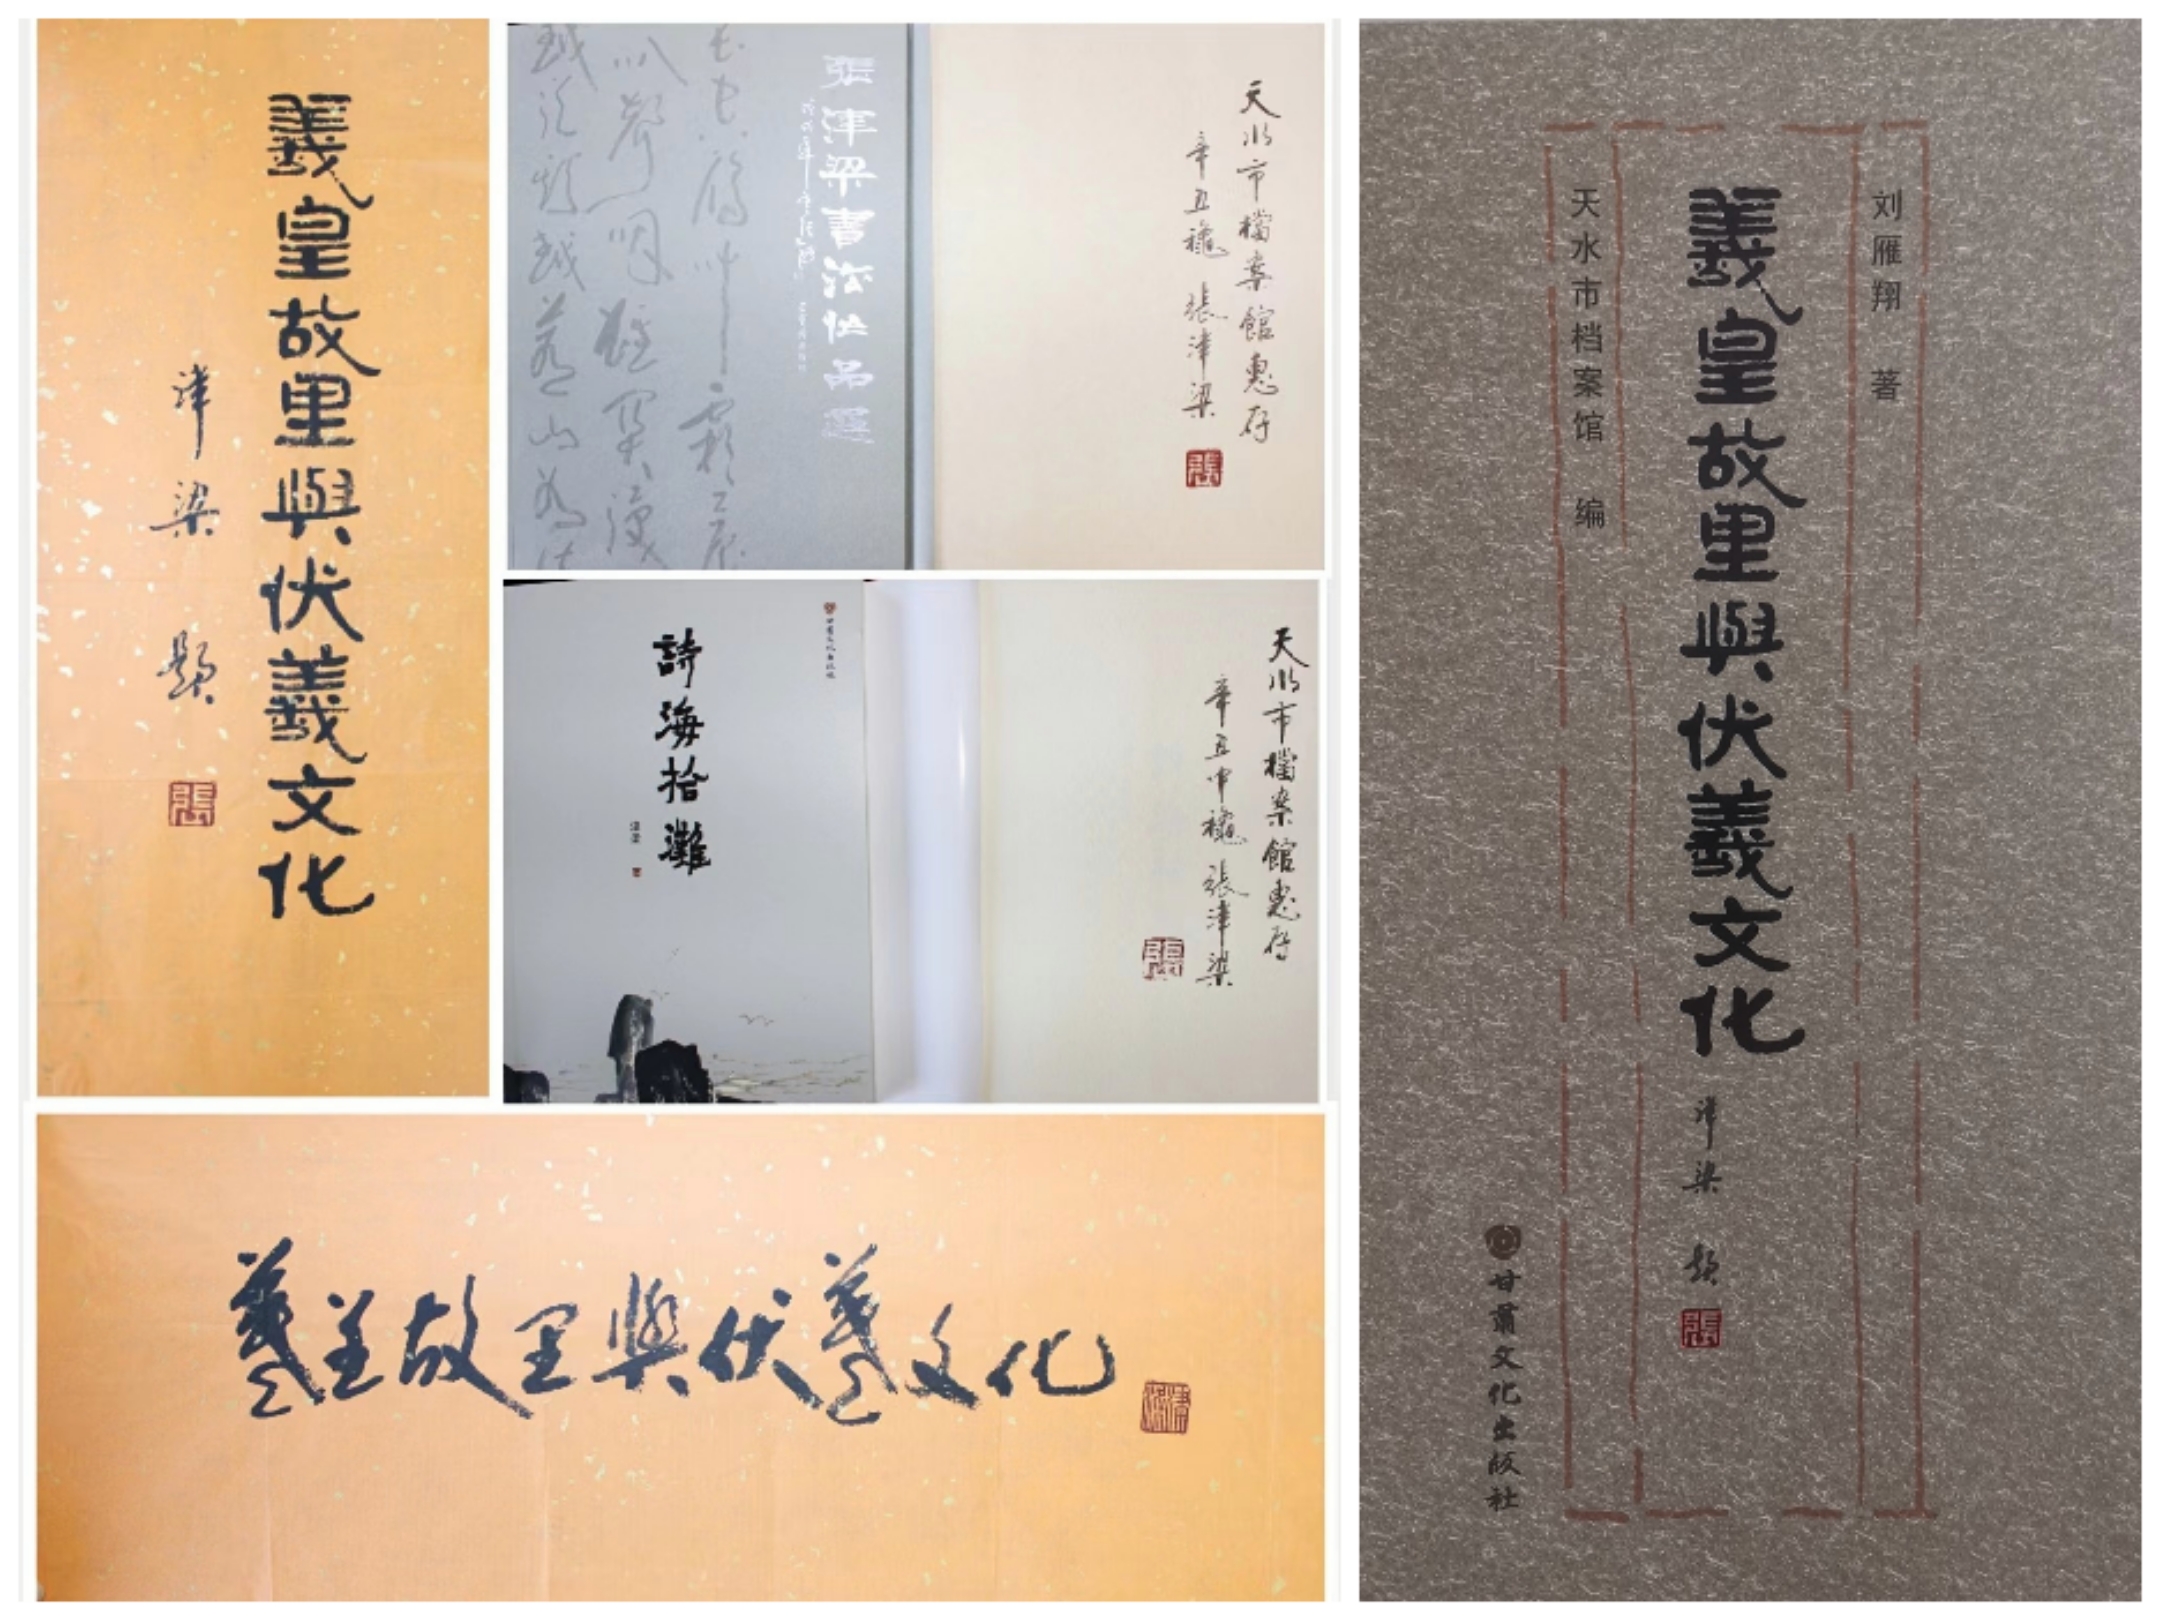 羲皇故里與伏羲文化
津梁 題
張
張津梁書法作品選
天水市檔案館惠存
辛丑穐 張津梁
張
詩海拾灘
津梁
天水市檔案館惠存
辛丑中穐 張津梁
張
羲皇故里與伏羲文化
津梁
刘雁翔 著
羲皇故里與伏羲文化
津梁 題
張
天水市档案馆 编
甘肅文化出版社